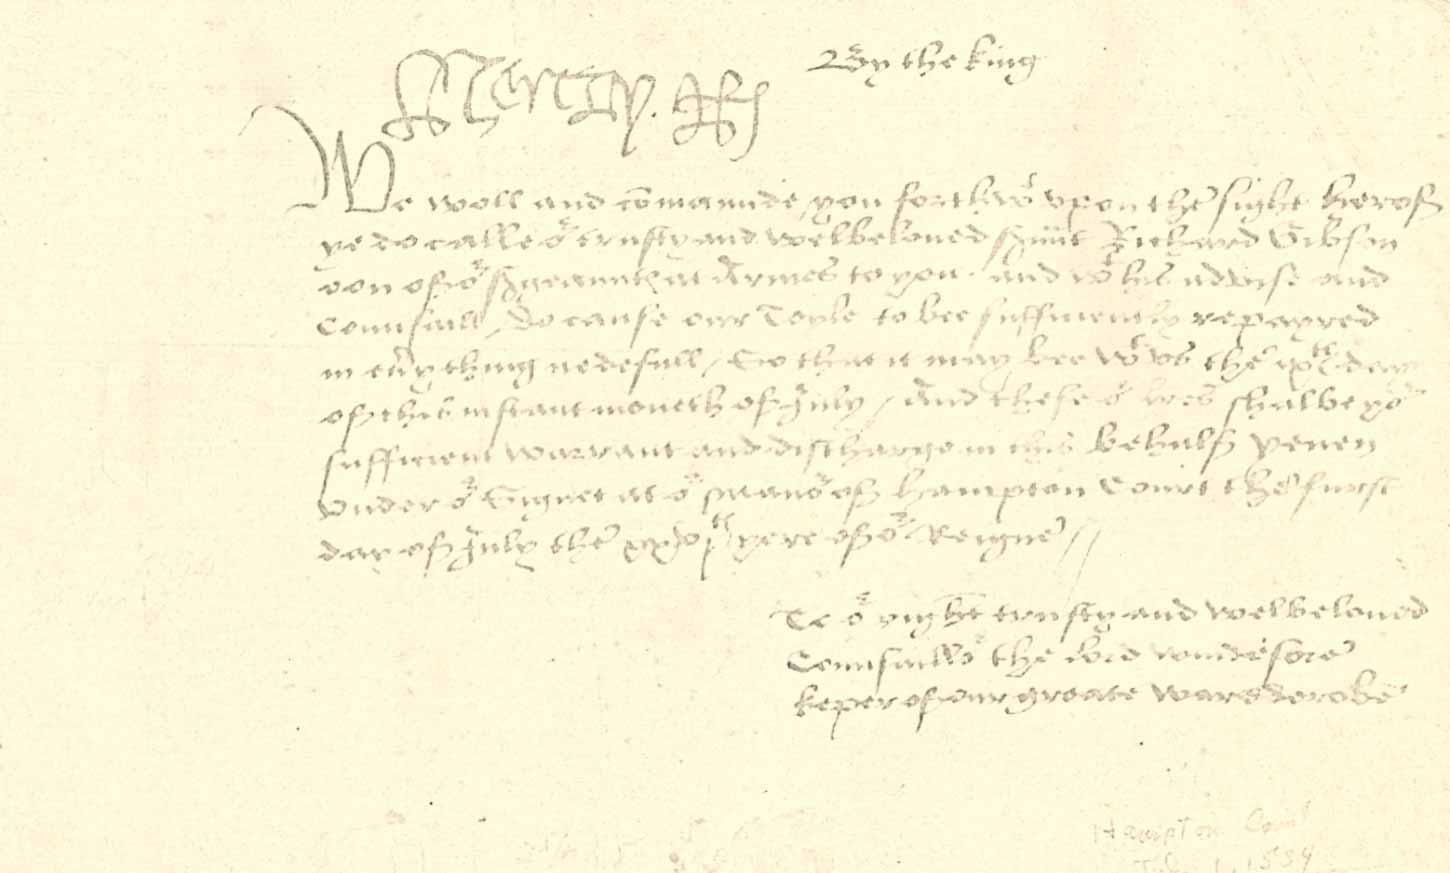 By the king
Henry R
We woll and cōmaunde you forthwt vpon the sight hereof
ye do calle or trusty and welbeloued srunt Richard Gibson
oon of or srgeauntℯ at Armes to you. and wt his advise and
Counsaill / do cause our Toyle to bee sufficiently repayred
in eūy thing nedefull / So that it may bee wt vs the ixth day
of this instant moneth of July / And these or lres shalbe yor
sufficient warrant and discharge in this behalf yeuen
vnder or Signet at or Manor of hampton Court the furst
day of July the yere of or Reigne //
To or right trusty and welbeloued
Counsaillor the lord windesore
keper of our greate warderobe
Hampton Court
July 1, 1534